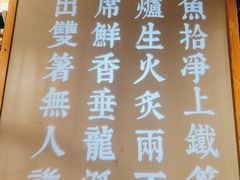 魚拾淨上鐵
爐生火炙兩
席鮮香垂龍
出雙箸無人